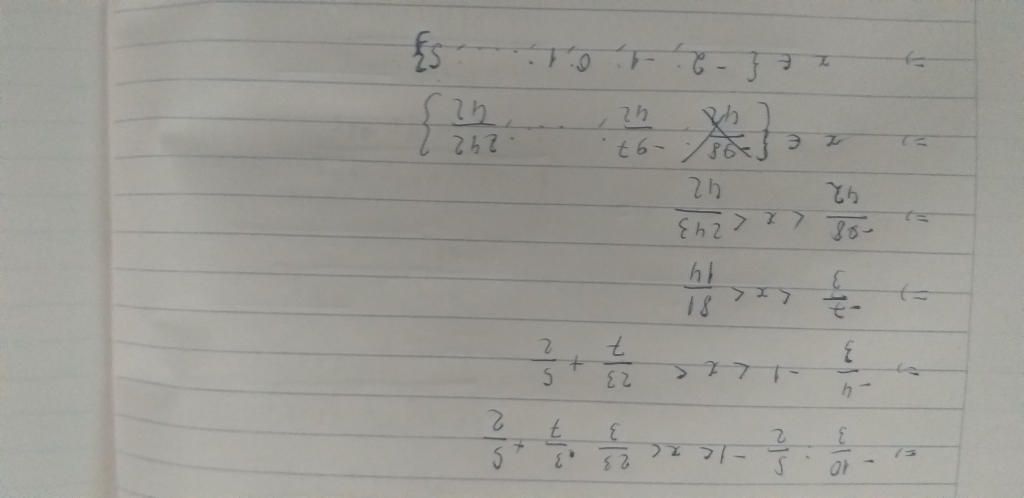 => -10/3 : 5/2 - 1 < x < 23/3 . 3/7 + 5/2
=> -4/3 - 1 < x < 23/7 + 5/2
=> -7/3 < x < 81/14
=> -98/42 < x < 243/42
=> x ∈ { -97/42 ; ..... ; 242/42 }
=> x ∈ { -2 ; -1 ; 0 ; 1 ; ..... ; 5 }